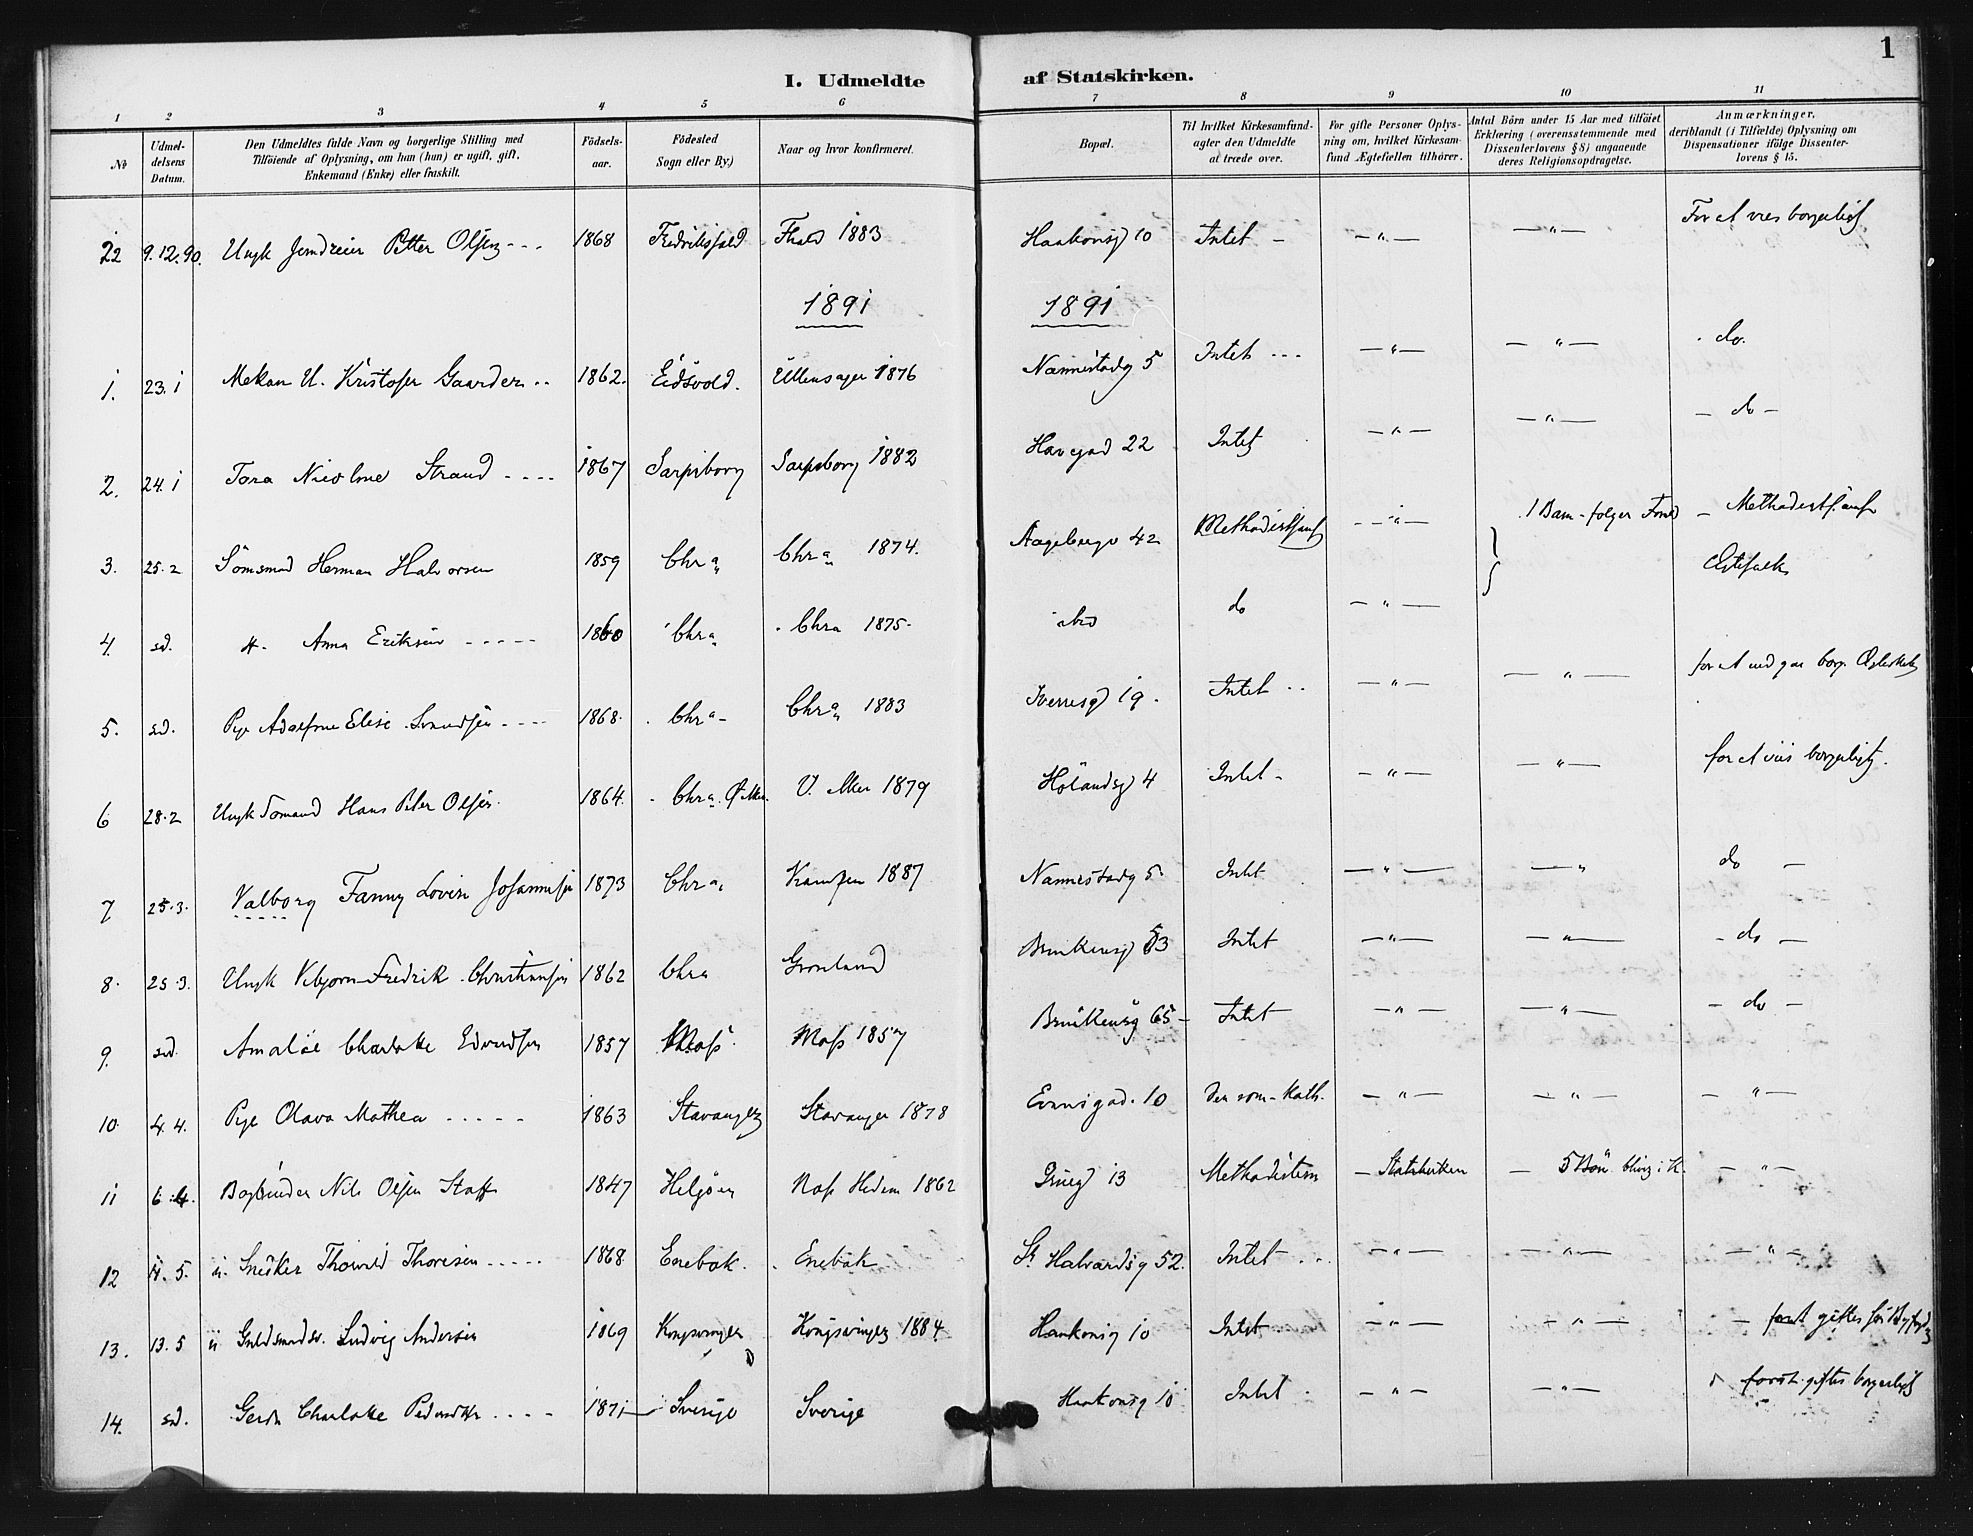 1
I. Udmeldte af Statskirken.
1 2 3 4 5 6 7 8 9 10 11
No
Udmeldelsens Datum.
Den Udmeldtes fulde Navn og borgerlige Stilling med
Tilføiende af Oplysning, om han (hun) er ugift, gift,
Enkemand (Enke) eller fraskilt.
Fødselsaar.
Fødested
Sogn eller By.)
Naar og hvor konfirmeret.
Bopæl.
Til hvilket Kirkesamfund-
agter den Udmeldte
at træde over.
For gifte Personer Oplys-
ning om, hvilket Kirkesam-
fund Ægtefællen tilhører.
Antal Börn under 15 Aar med tilföiet
Erklæring (overensstemmende med
Dissenterlovens § 8) angaaende
deres Religionsopdragelse.
Anmærkninger,
deriblandt (i Tilfælde) Oplysning om
Dispensationer ifölge Dissenter-
lovens § 15.
22 9.12.90. Ungk Petter Olsen --- 1868 Fredrikshald Fhald 1883 Haakonsg 10 Intet - — " — — " — For at vies borgerligt
1891 1891
1. 23.1 Kristofer Gaarder .. 1862. Eidsvold. Ullensager 1876 Nannestadg 5 Intet ... — " — — " — do.
2. 24.1 Tora Nicoline Strand ---- 1867 Sarpsborg Sarpsborg 1882 Havegad 22 Intet — " — — " — — do —
3. 25.2 Herman Halvorsen 1859 Chra Chra 1874. Aagebergv 42 Methodistsamf — " — 1 Barn - følger — Methodistsamf
Ægtefolk
4. sd. H. Anna Eriksen ----- 1860 Chra Chra 1875 ibid do — " —
5. sd. Pige Elise ---- 1868. Chra - Chra 1883 Sverresg 19. Intet .. — " — — " — for at indgaa borg.
6 28.2 Ungk Hans Peter Olsen. 1864. Chra. Ø Aker. V. Aker 1879 Hölandsg 4 Intet - — " — — " — for at viis borgerligt.
7 25.3. Valborg Fanny Lovise Johannesen 1873 Chra Kampen 1887 Nannestadg 5 Intet — " — — " do —
8. 25.3. Ungk Fredrik Christiansen 1862 Chra Grønland 53 Intet — " — — " — - do —
9. sd. Charlotte 1857 Moss Moss 1857 65 - Intet — " — — " — - do -
10. 4.4. Pige Olava Mathea ----- 1863 Stavanger Stavanger 1878 10 Den rom-Kath. — " — — " — - " —
11 6.4. Bogbinder Nils Olsen 1847 Helgøen 1862 13 Methodistern — Statskirken — 5 - " —
12 11.5. u. Snedker Thorvald Thoresen ----- 1868 Enebak. Enebak St Halvardsg 52. Intet ... — " — — " — — " -
13. 13.5 u Guldsmedsv. Ludvig Andersen 1869 Kongsvinger Kongsvinger 1884. Haakonsg 10 Intet — " — - " —
14. sd. Gerda Charlotte ---- 1871 Sverige Sverige Haakonsg 10 Intet . — " - — " — giftes borgerligt